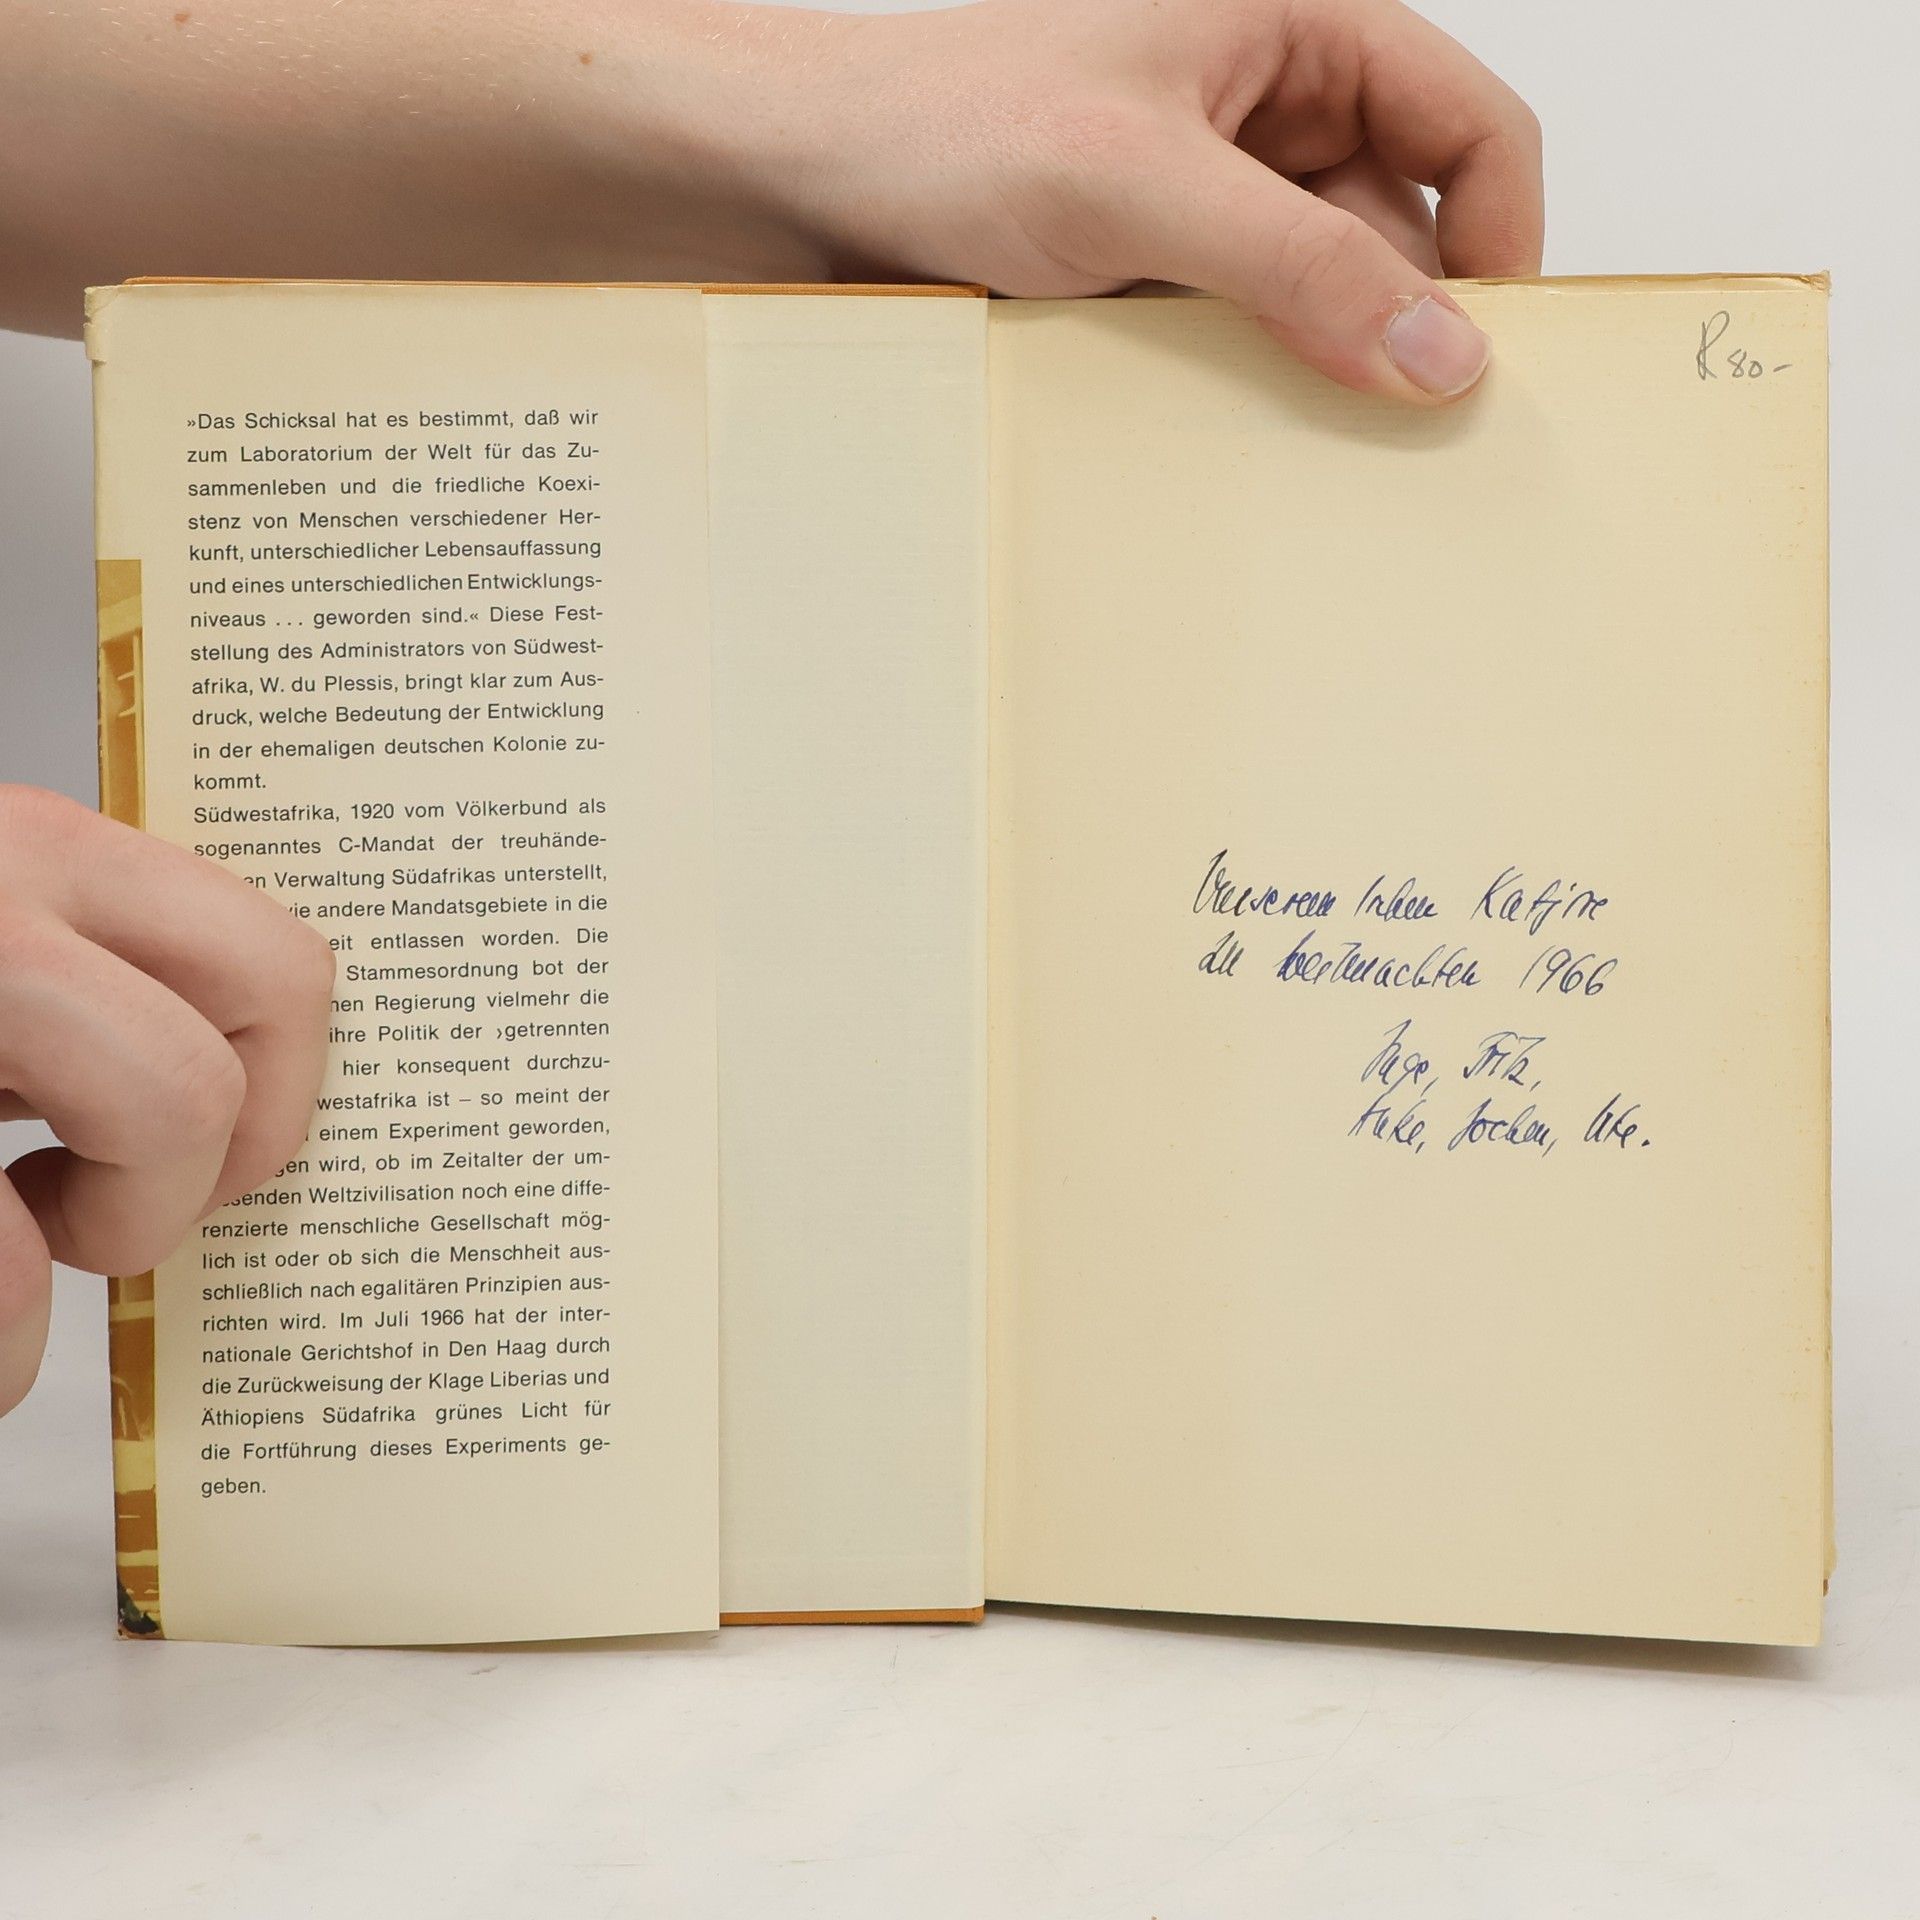 »Das Schicksal hat es bestimmt, daß wir
zum Laboratorium der Welt für das Zu-
sammenleben und die friedliche Koexi-
stenz von Menschen verschiedener Her-
kunft, unterschiedlicher Lebensauffassung
und eines unterschiedlichen Entwicklungs-
niveaus ... geworden sind.« Diese Fest-
stellung des Administrators von Südwest-
afrika, W. du Plessis, bringt klar zum Aus-
druck, welche Bedeutung der Entwicklung
in der ehemaligen deutschen Kolonie zu-
kommt.
Südwestafrika, 1920 vom Völkerbund als
sogenanntes C-Mandat der treuhände-
en Verwaltung Südafrikas unterstellt,
ie andere Mandatsgebiete in die
eit entlassen worden. Die
Stammesordnung bot der
hen Regierung vielmehr die
ihre Politik der ›getrennten
hier konsequent durchzu-
westafrika ist – so meint der
einem Experiment geworden,
gen wird, ob im Zeitalter der um-
senden Weltzivilisation noch eine diffe-
renzierte menschliche Gesellschaft mög-
lich ist oder ob sich die Menschheit aus-
schließlich nach egalitären Prinzipien aus-
richten wird. Im Juli 1966 hat der inter-
nationale Gerichtshof in Den Haag durch
die Zurückweisung der Klage Liberias und
Äthiopiens Südafrika grünes Licht für
die Fortführung dieses Experiments ge-
geben.
R 80-
Unserem
zu Weihnachten 1966
Inge, Fritz,
Anke, Jochen, Ute.